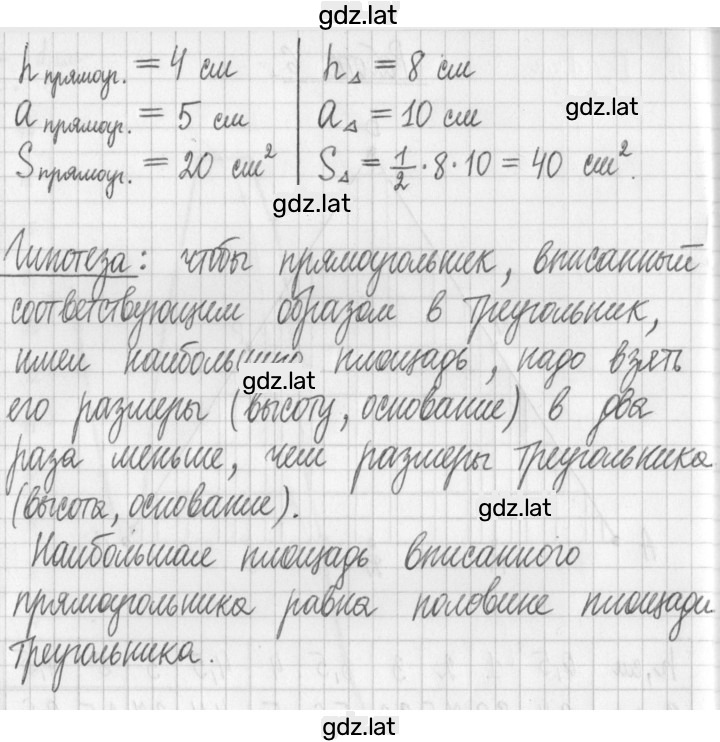 gdz.lat
h прямоуг. = 4 см | h Δ = 8 см
a прямоуг. = 5 см | a Δ = 10 см gdz.lat
S прямоуг. = 20 см² | S Δ = 1/2 · 8 · 10 = 40 см².
gdz.lat
Гипотеза: чтобы прямоугольник, вписанный
соответствующим образом в треугольник,
имел наибольшую площадь, надо взять
gdz.lat
его размеры (высоту, основание) в два
раза меньше, чем размеры треугольника
(высота, основание).
gdz.lat
Наибольшая площадь вписанного
прямоугольника равна половине площади
треугольника.
gdz.lat